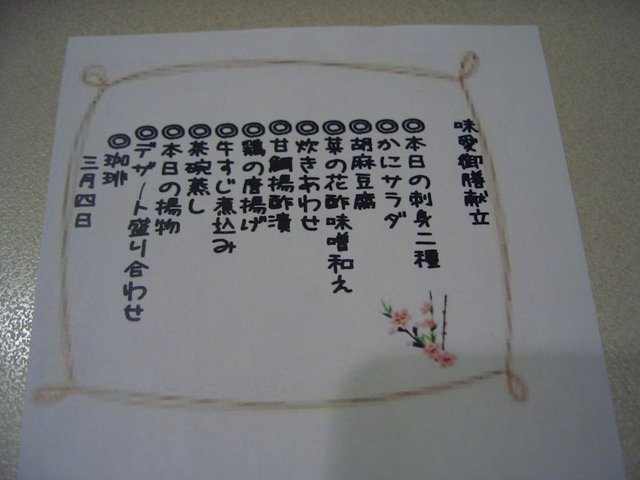 味愛御膳献立
◎本日の刺身二種
◎かにサラダ
◎胡麻豆腐
◎菜の花酢味噌和え
◎炊きあわせ
◎甘鯛揚酢漬
◎鶏の唐揚げ
◎牛すじ煮込み
◎茶碗蒸し
◎本日の揚物
◎デザート盛り合わせ
◎珈琲
三月四日